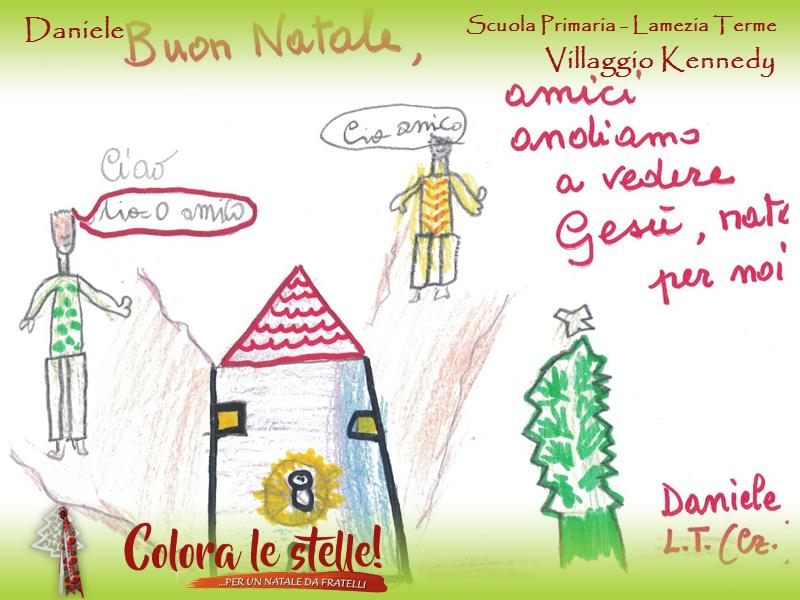 Daniele
Scuola Primaria - Lamezia Terme
Villaggio Kennedy
Buon Natale,
amici
andiamo
a vedere
Gesù, nato
per noi
Ciao
Ciao amico
Ciao amico
8
Daniele
L.T. (Cz.
Colora le stelle!
...PER UN NATALE DA FRATELLI